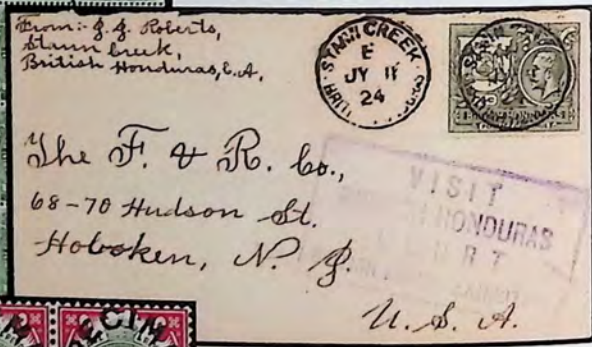 From:- J. J. Roberts,
Stann Creek,
British Honduras, C.A.
STANN CREEK
E
JY 11
24
The F. & R. Co.,
68-70 Hudson St.
Hoboken, N. J.
U. S. A.
VISIT
HONDURAS
SPECIM